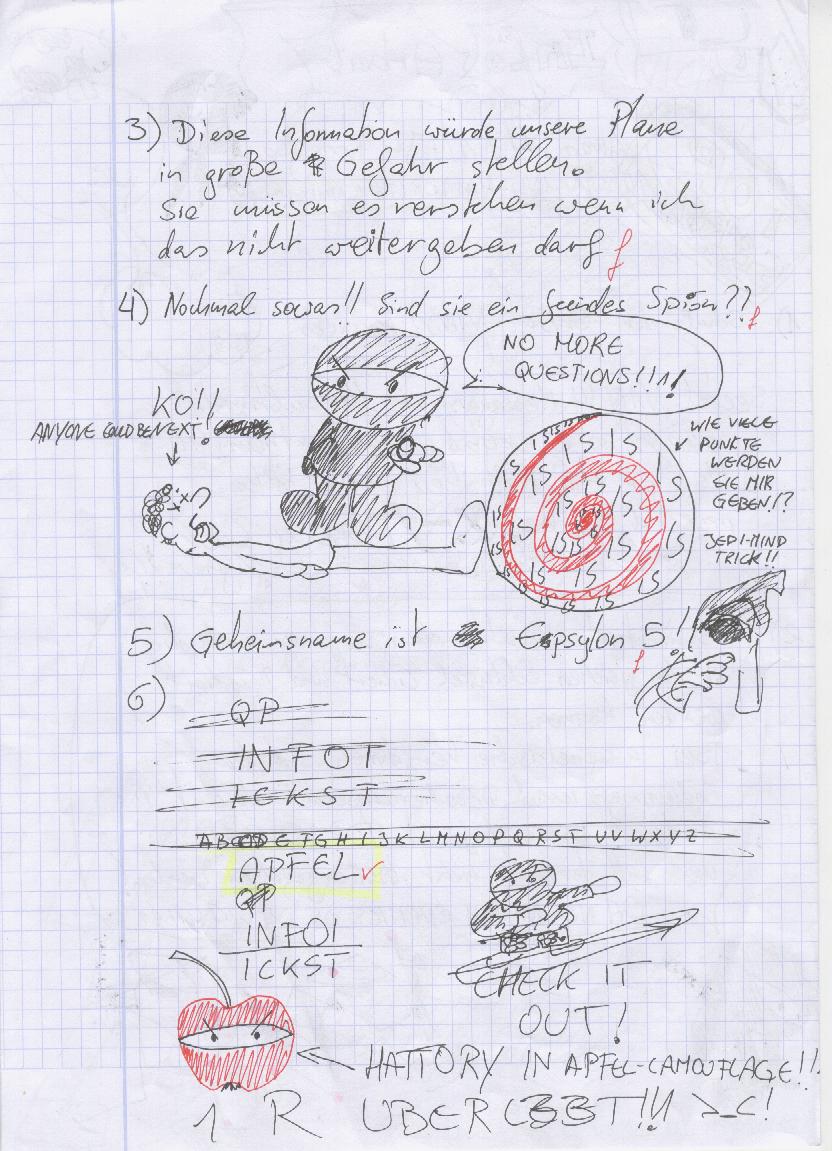 3) Diese Information würde unsere Pläne
in große Gefahr stellen.
Sie müssen es verstehen wenn ich
das nicht weitergeben darf f
4) Nochmal sowas!! Sind sie ein Spion?? f
NO MORE
QUESTIONS!!1!
KO!!
ANYONE COULD BE NEXT!
WIE VIELE
PUNKTE
WERDEN
SIE MIR
GEBEN!?
JEDI-MIND
TRICK!!
15 15 15 15 15 15
5) Geheimsname ist Epsylon 5! f
6)
QP
INFOT
ICKST
ABCDEFGHIJKLMNOPQRSTUVWXYZ
APFEL
QP
INFO!
ICKST
CHECK IT
OUT!
HATTORY IN APFEL-CAMOUFLAGE!!
1 R UBER L33T!!! >_<!